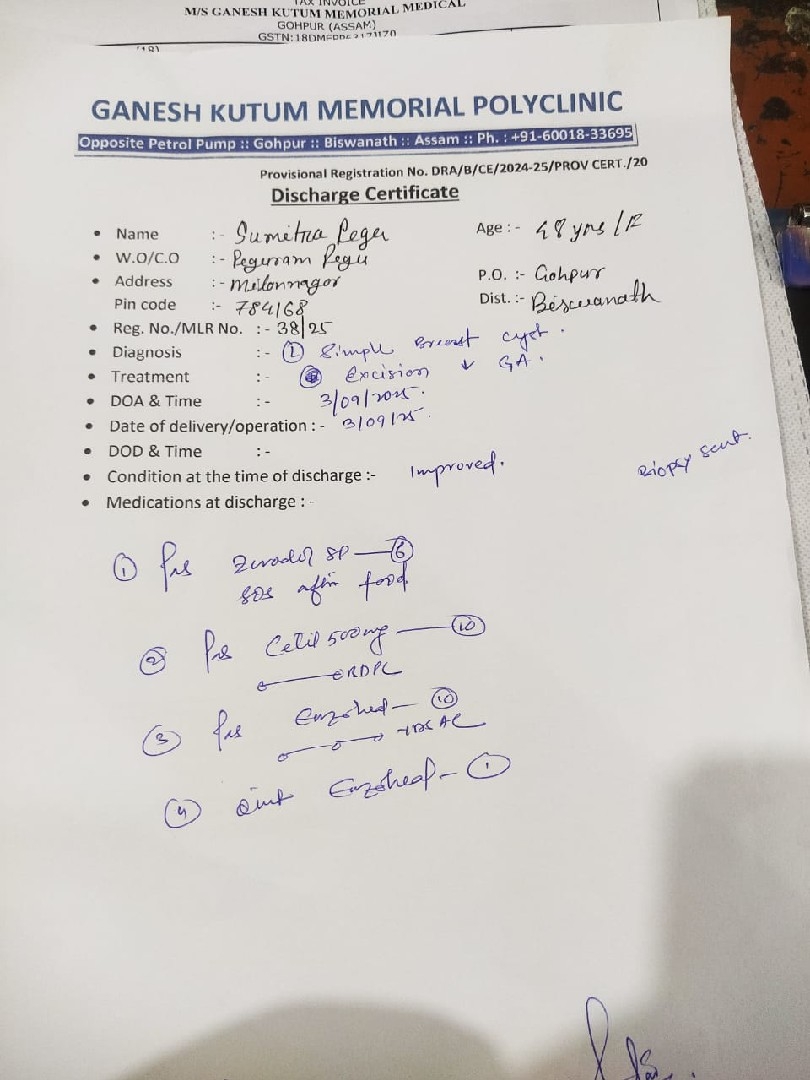 TAX INVOICE
M/S GANESH KUTUM MEMORIAL MEDICAL
GOHPUR (ASSAM)
GANESH KUTUM MEMORIAL POLYCLINIC
Opposite Petrol Pump :: Gohpur :: Biswanath :: Assam :: Ph. : +91-60018-33695
Provisional Registration No. DRA/B/CE/2024-25/PROV CERT./20
Discharge Certificate
• Name :- Sumitra Pegu Age :- 48 yrs / F
• W.O/C.O :- Peguram Pegu
• Address :- Milonnagar P.O. :- Gohpur
Pin code :- 784168 Dist. :- Biswanath
• Reg. No./MLR No. :- 38/25
• Diagnosis :- Simple Breast cyst.
• Treatment :- Excision ↓ GA.
• DOA & Time :- 3/09/2025.
• Date of delivery/operation :- 3/09/25
• DOD & Time :-
• Condition at the time of discharge :- Improved. Biopsy sent.
• Medications at discharge :-
① Zerodol SP — ⑥
SOS after food
② Cetil 500mg — ⑩
③ Enzoheal — ⑩
④ oint Enzoheal — ①